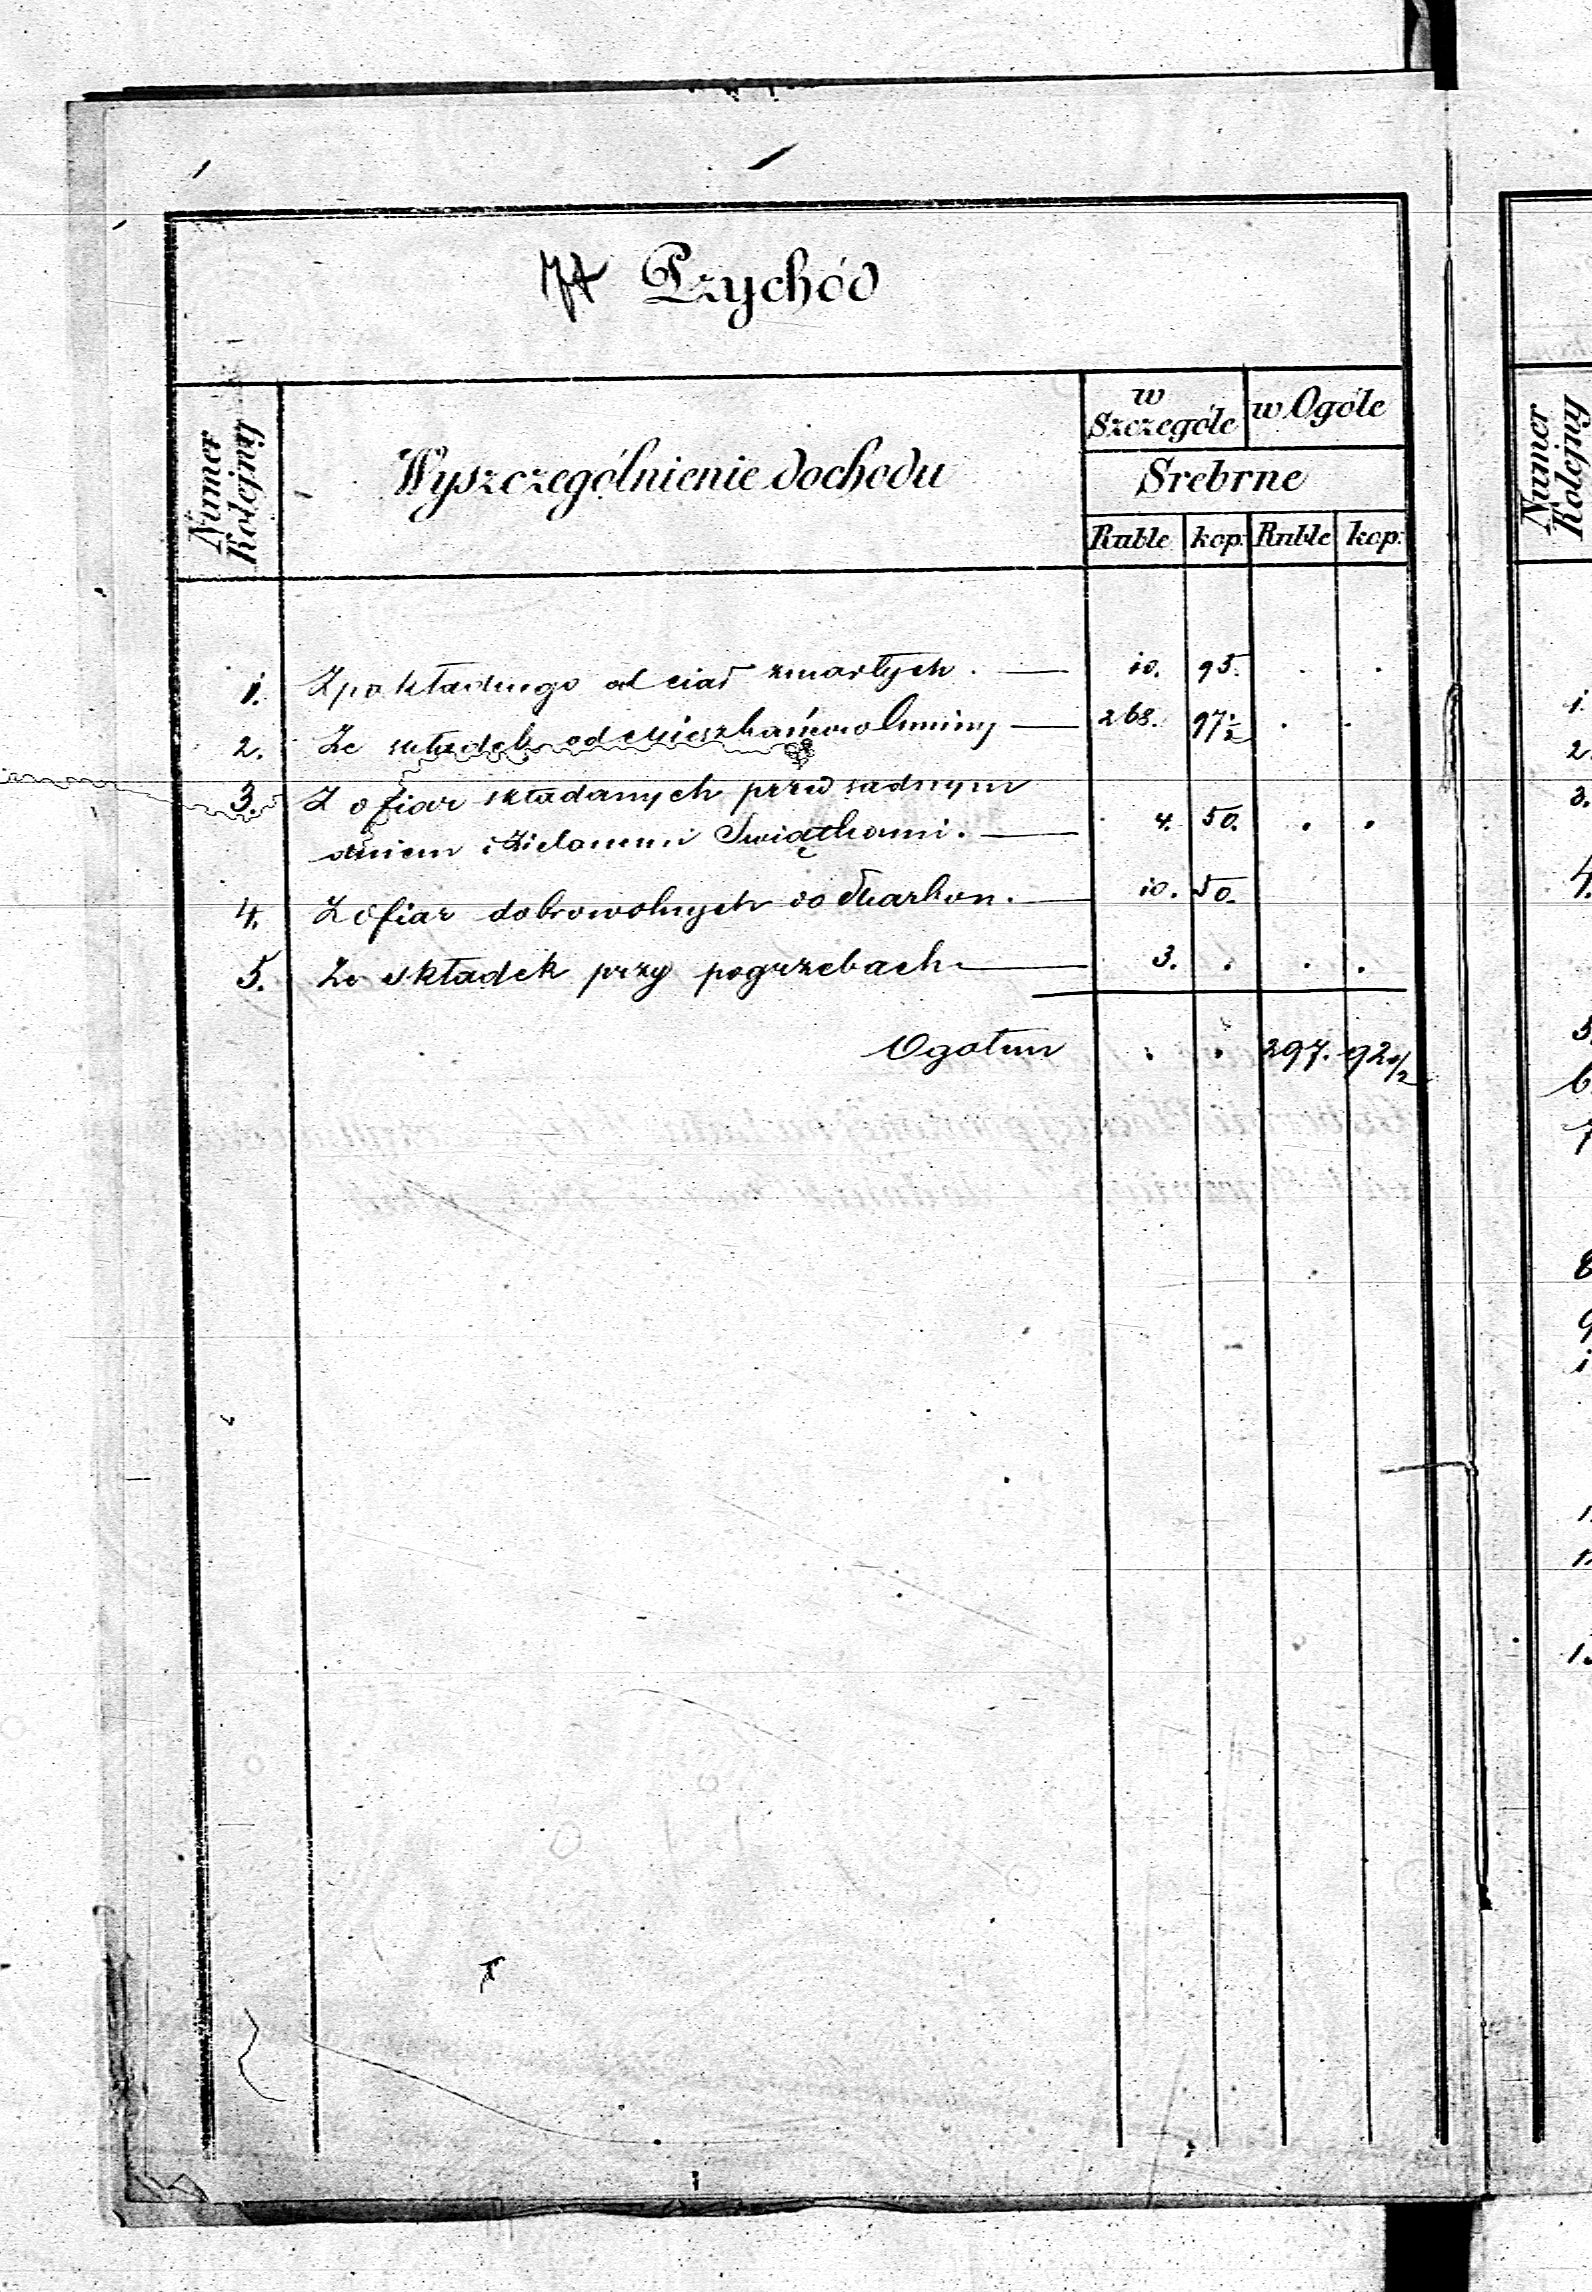 Przychód
Numer Kolejny
Wyszczególnienie dochodu
w Szczególe
w Ogóle
Srebrne
Ruble kop: Ruble kop:
1. Z pokładnego od ciał zmarłych. 10. 95. . .
2. Ze składek od Mieszkańców Gminy 268. 97 1/2 . .
3. Z ofiar składanych przed sadnym
dniem i Zielonemi Swiątkami. 4. 50. . .
4. Z ofiar dobrowolnych do Skarbon. 10. 50.
5. Ze składek przy pogrzebach 3. . . .
Ogołem . . 297. 92 1/2
Numer Kolejny
1.
2.
3.
4.
5.
6.
7
8
9